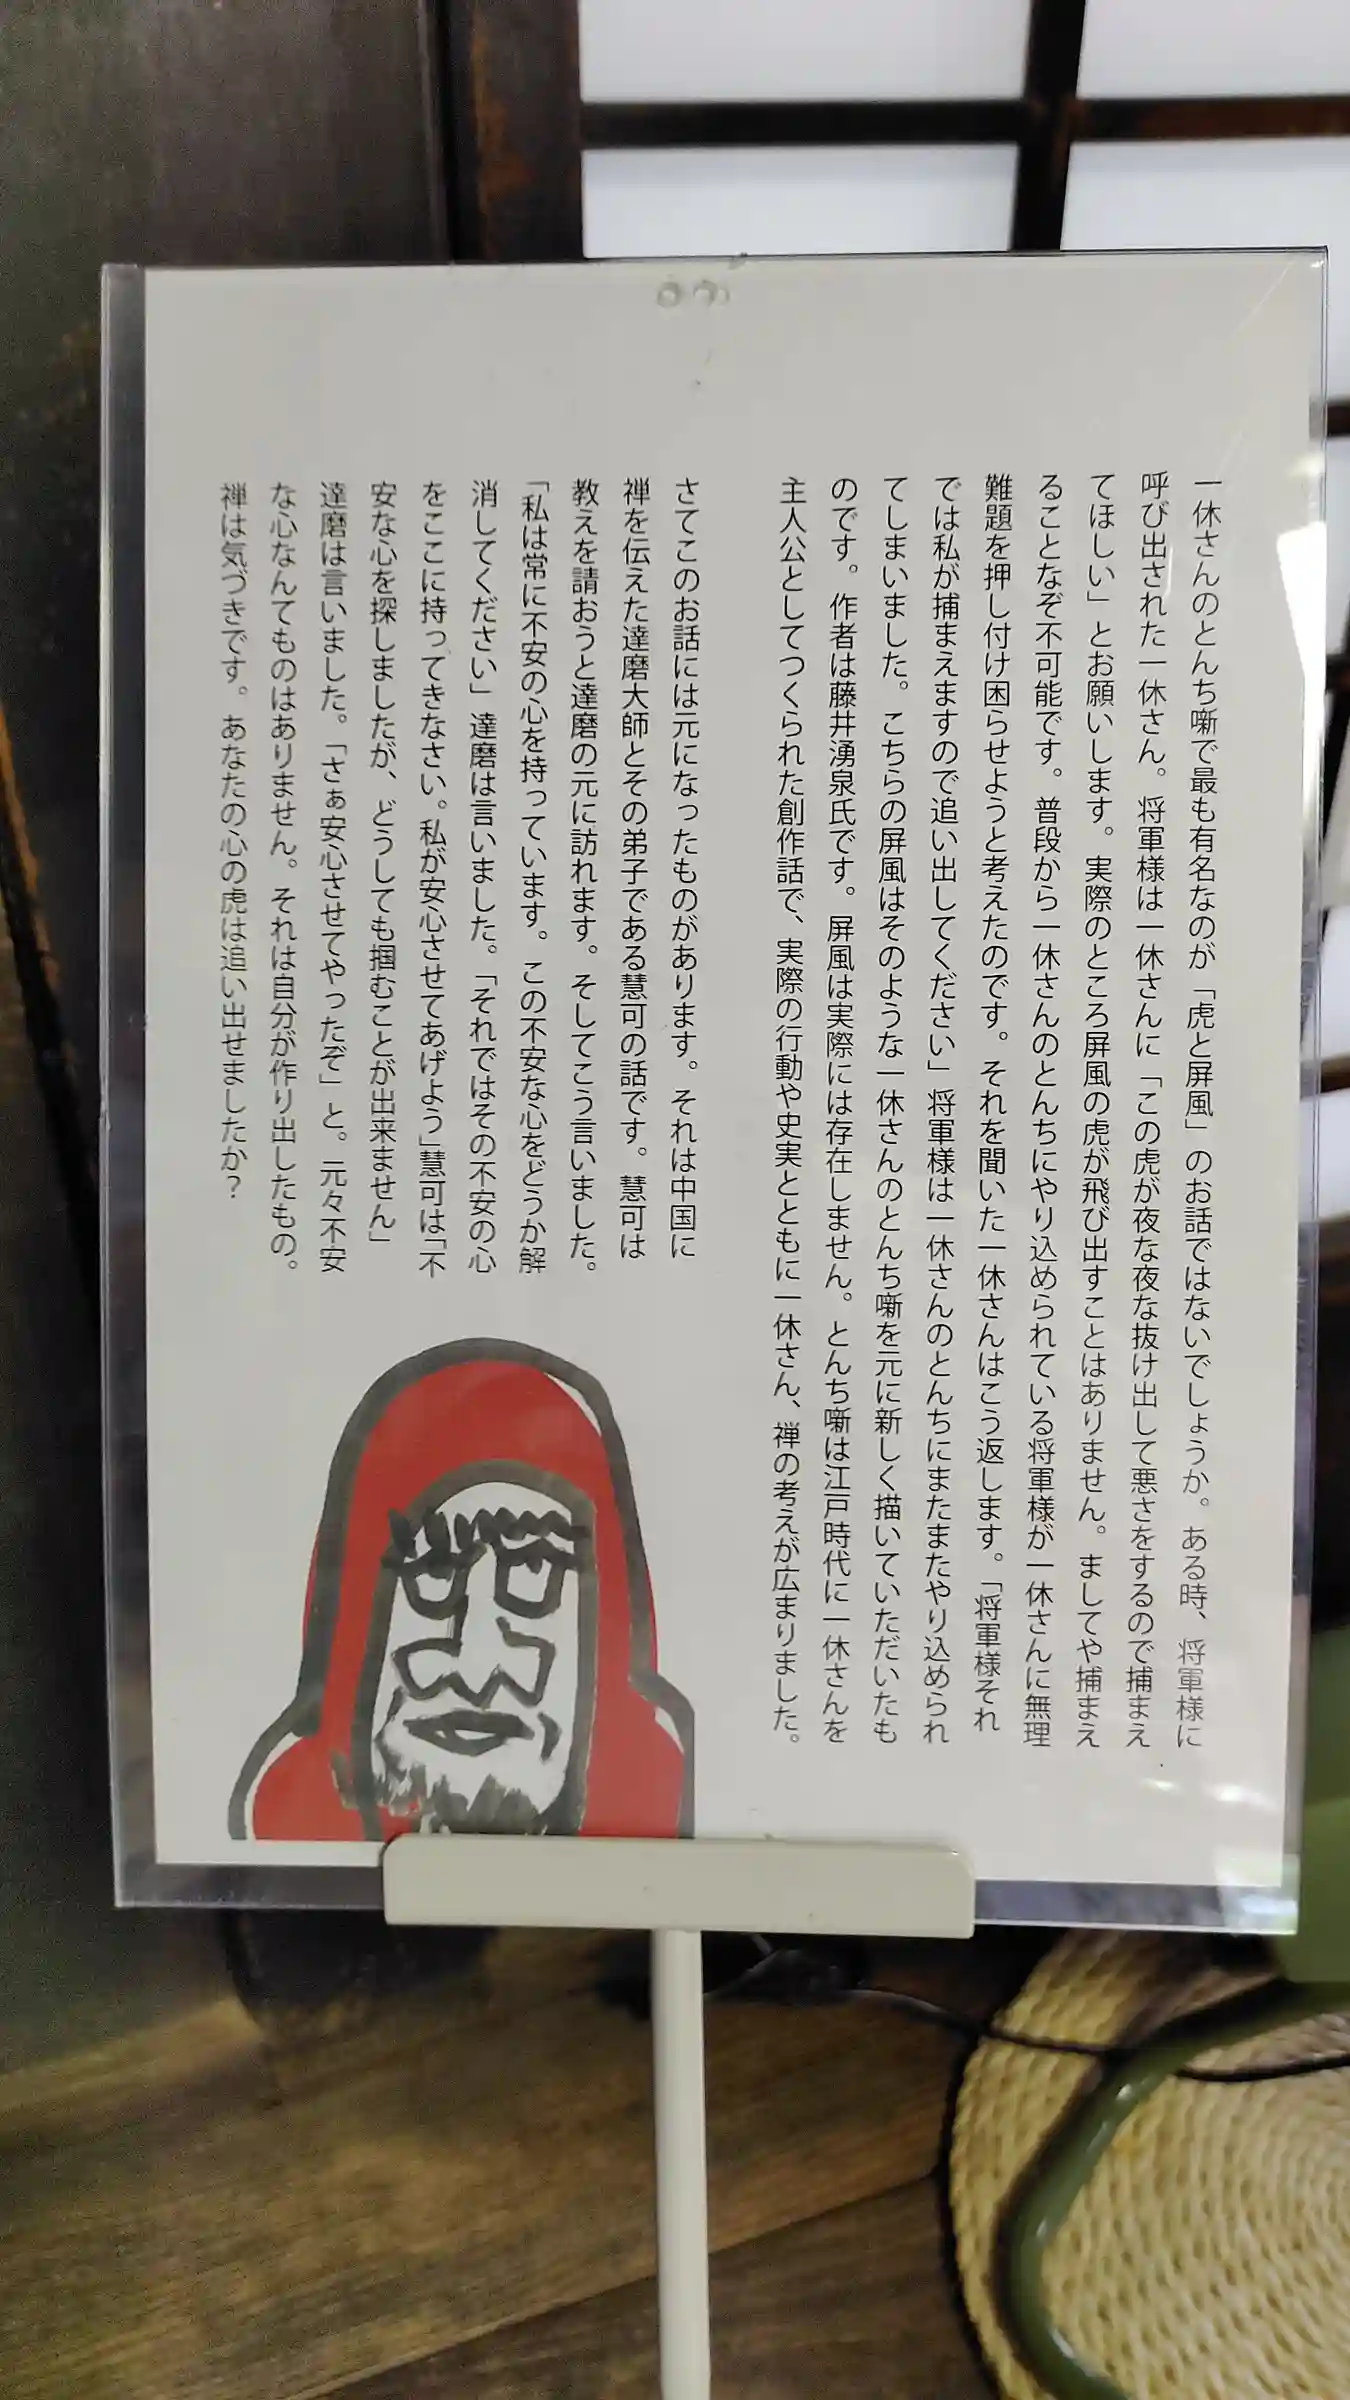 一休さんのとんち噺で最も有名なのが「虎と屏風」のお話ではないでしょうか。ある時、将軍様に
呼び出された一休さん。将軍様は一休さんに「この虎が夜な夜な抜け出して悪さをするので捕まえ
てほしい」とお願いします。実際のところ屏風の虎が飛び出すことはありません。ましてや捕まえ
ることなぞ不可能です。普段から一休さんのとんちにやり込められている将軍様が一休さんに無理
難題を押し付け困らせようと考えたのです。それを聞いた一休さんはこう返します。「将軍様それ
では私が捕まえますので追い出してください」将軍様は一休さんのとんちにまたまたやり込められ
てしまいました。こちらの屏風はそのような一休さんのとんち噺を元に新しく描いていただいたも
のです。作者は藤井湧泉氏です。屏風は実際には存在しません。とんち噺は江戸時代に一休さんを
主人公としてつくられた創作話で、実際の行動や史実とともに一休さん、禅の考えが広まりました。
さてこのお話には元になったものがあります。それは中国に
禅を伝えた達磨大師とその弟子である慧可の話です。慧可は
教えを請おうと達磨の元に訪れます。そしてこう言いました。
「私は常に不安の心を持っています。この不安な心をどうか解
消してください」達磨は言いました。「それではその不安の心
をここに持ってきなさい。私が安心させてあげよう」慧可は「不
安な心を探しましたが、どうしても掴むことが出来ません」
達磨は言いました。「さぁ安心させてやったぞ」と。元々不安
な心なんてものはありません。それは自分が作り出したもの。
禅は気づきです。あなたの心の虎は追い出せましたか？